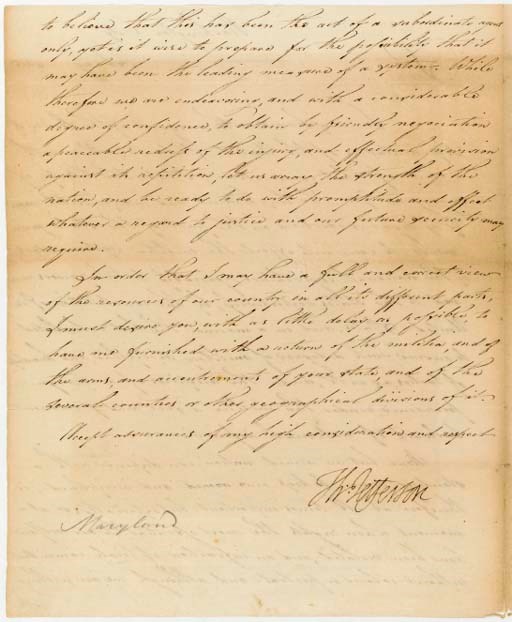 to believe that this has been the act of a subordinate agent
only, yet is it wise to prepare for the possibility that it
may have been the leading measure of a system. While
therefore we are endeavoring, and with a considerable
degree of confidence, to obtain by friendly negociation
a peaceable redress of the injury, and effectual provision
against its repetition, let us array the strength of the
nation, and be ready to do with promptitude and effect
whatever a regard to justice and our future security may
require.
In order that I may have a full and correct view
of the resources of our country in all its different parts,
I must desire you, with as little delay as possible to
have me furnished with a return of the militia, and of
the arms and accoutrements of your state, and of the
several counties or other geographical divisions of it.
Accept assurances of my high consideration and respect
Th: Jefferson
Maryland